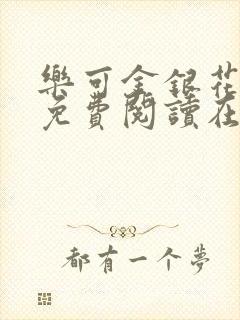 樂可金銀花
免費閱讀在
都有一个夢